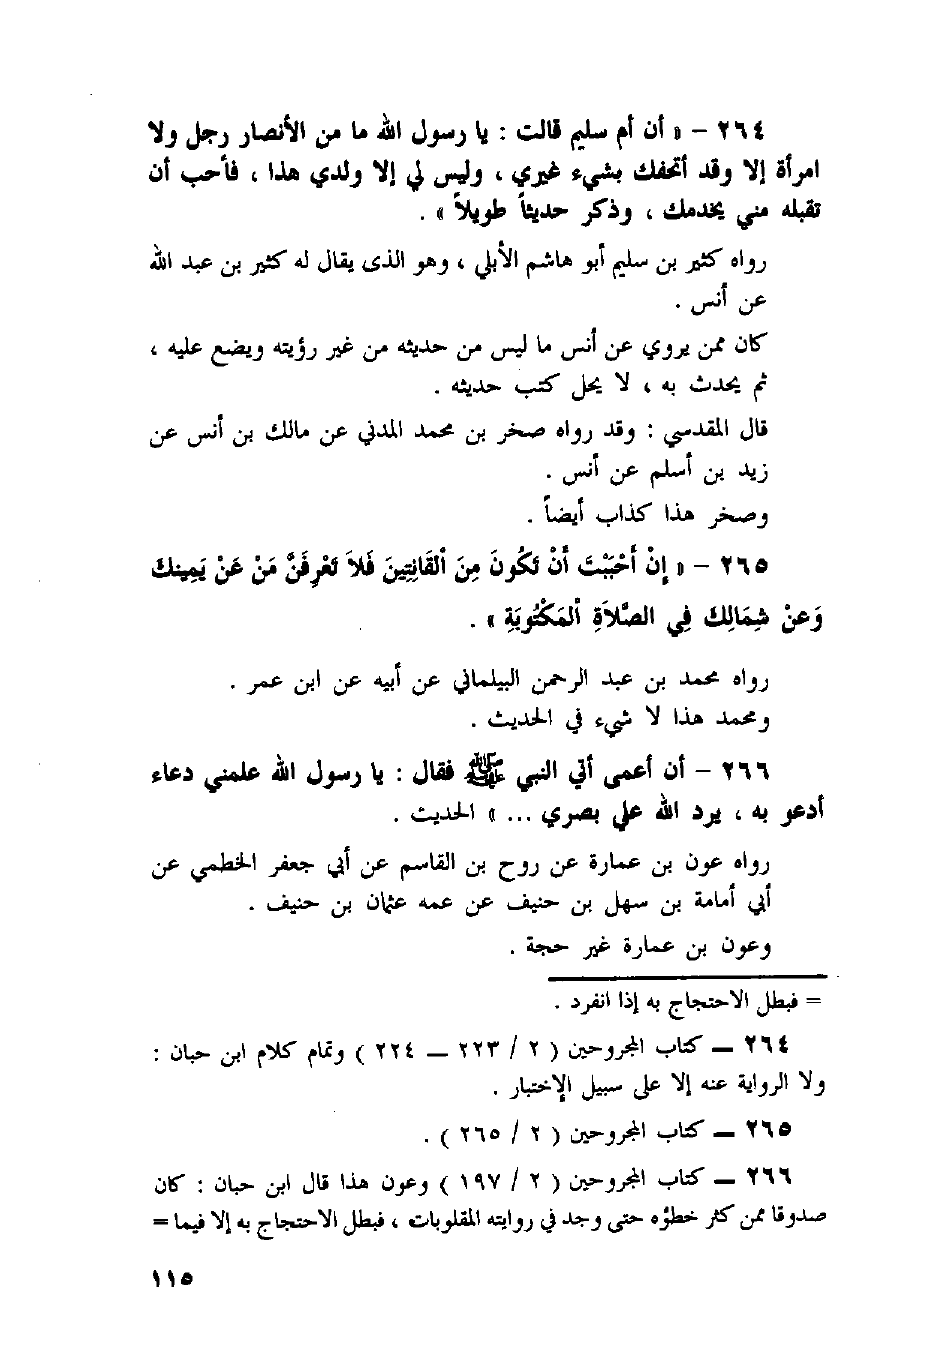 ٢٦٤ - « أن أم سليم قالت : يا رسول الله ما من الأنصار رجل ولا
امرأة إلا وقد أتحفك بشيء غيري ، وليس لي إلا ولدي هذا ، فأحب أن
تقبله مني يخدمك ، وذكر حديثاً طويلاً » .
رواه كثير بن سليم أبو هاشم الأبلي ، وهو الذى يقال له كثير بن عبد الله
عن أنس .
كان ممن يروي عن أنس ما ليس من حديثه من غير رؤيته ويضع عليه ،
ثم يحدث به ، لا يحل كتب حديثه .
قال المقدسي : وقد رواه صخر بن محمد المدني عن مالك بن أنس عن
زيد بن أسلم عن أنس .
وصخر هذا كذاب أيضاً .
٢٦٥ - « إِنْ أَحْبَبْتَ أَنْ تَكُونَ مِنَ ٱلقَانِتِينَ فَلاَ تَعْرِفَنَّ مَنْ عَنْ يَمِينِكَ
وَعنْ شِمَالِكَ فِي الصَّلاَةِ ٱلمَكْتُوبَةِ » .
رواه محمد بن عبد الرحمن البيلماني عن أبيه عن ابن عمر .
ومحمد هذا لا شيء في الحديث .
٢٦٦ - أن أعمى أتي النبي ﷺ فقال : يا رسول الله علمني دعاء
أدعو به ، يرد الله علي بصري ... » الحديث .
رواه عون بن عمارة عن روح بن القاسم عن أبي جعفر الخطمي عن
أبي أمامة بن سهل بن حنيف عن عمه عثمان بن حنيف .
وعون بن عمارة غير حجة .
= فبطل الاحتجاج به إذا انفرد .
٢٦٤ — كتاب المجروحين ( ٢ / ٢٢٣ — ٢٢٤ ) وتمام كلام ابن حبان :
ولا الرواية عنه إلا على سبيل الإختبار .
٢٦٥ — كتاب المجروحين ( ٢ / ٢٦٥ ) .
٢٦٦ — كتاب المجروحين ( ٢ / ١٩٧ ) وعون هذا قال ابن حبان : كان
صدوقا ممن كثر خطؤه حتى وجد في روايته المقلوبات ، فبطل الاحتجاج به إلا فيما =
١١٥